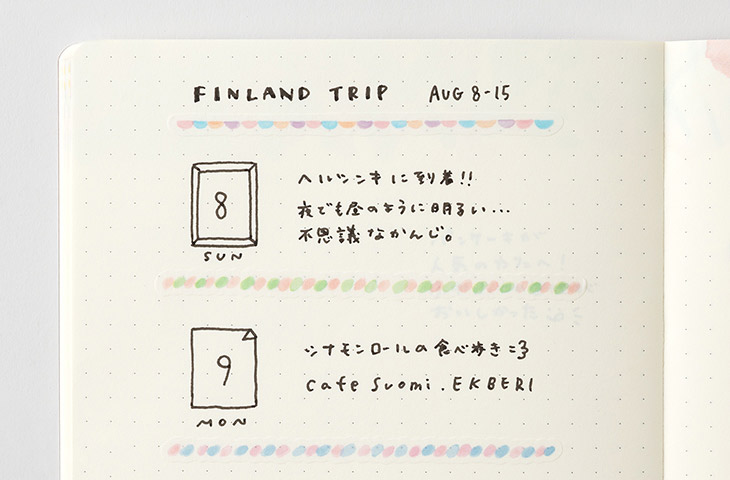 FINLAND TRIP AUG 8-15
8
SUN
ヘルシンキに到着!!
夜でも昼のように明るい...
不思議なかんじ。
9
MON
シナモンロールの食べ歩き
Cafe Suomi. EKBERI